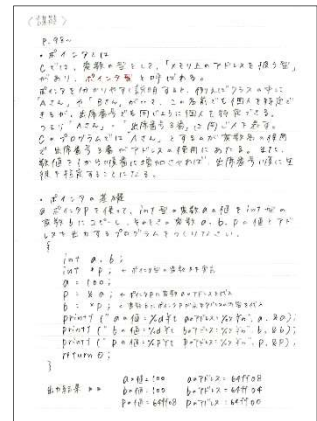 (課題)
p.98〜
・ポインタとは
Cでは、変数の型として、「メモリ上のアドレスを扱う型」
があり、ポインタ型と呼ばれる。
ポインタを分かりやすく説明すると、例えばクラスの中に
「Aさん」や「Bさん」がいて、この名前でも個人を特定で
きるが、出席番号でも同じように個人を特定できる。
つまり「Aさん」=「出席番号3番」は同じ人を表す。
Cのプログラムでは「Aさん」とするのが変数名の使用
で出席番号3番がアドレスの使用にあたる。また、
数値を1から順番に増加させれば、出席番号順に生
徒を特定することになる。
・ポインタの基礎
a ポインタPを使って、int型の変数aの値をint型の
変数bにコピーし、そのときの変数a、b、pの値とアド
レスを出力するプログラムをつくりなさい。
{
int a, b;
int *p; ←ポインタ型の変数を宣言
a = 100;
p = &a; ←ポインタpに変数aのアドレスを代入
b = *p;
printf ("aの値=%d¥t aのアドレス=%x¥n", a, &a);
printf ("bの値=%d¥t bのアドレス=%x¥n", b, &b);
printf ("pの値=%x¥t pのアドレス=%x¥n", p, &p);
return 0;
}
出力結果 >> aの値=100 aのアドレス=64ff08
bの値=100 bのアドレス=64ff04
pの値=64ff08 pのアドレス=64ff00